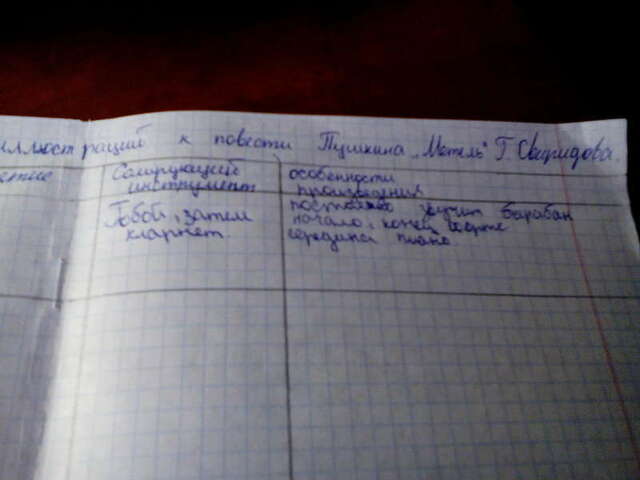 иллюстраций к повести Пушкина „Метель" Г. Свиридова.
Солирующий
инструмент
особенности
произведения
Гобой, затем
кларнет.
постоянно звучит барабан
начало, конец форте
середина пиано